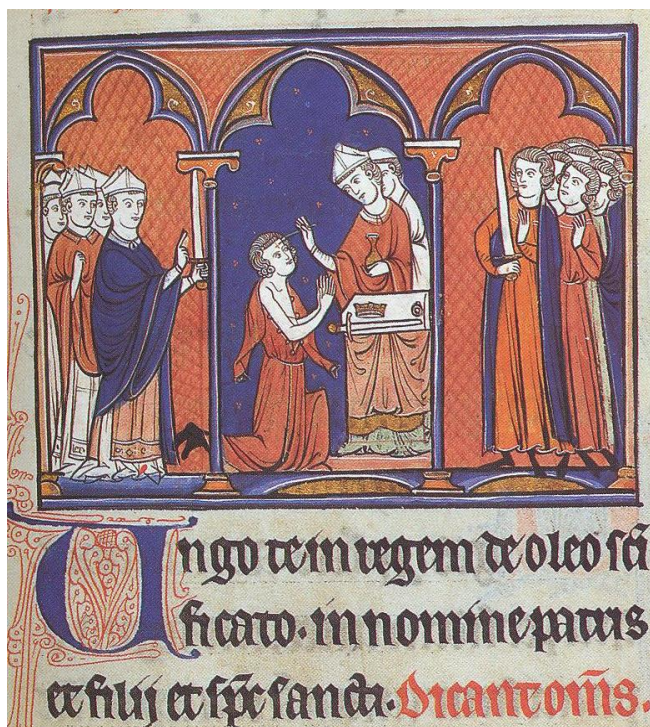 Ungo te in regem de oleo sc̄i
ficato. in nomine patris
et filij et sp̄c sancti. Dicant om̄s.